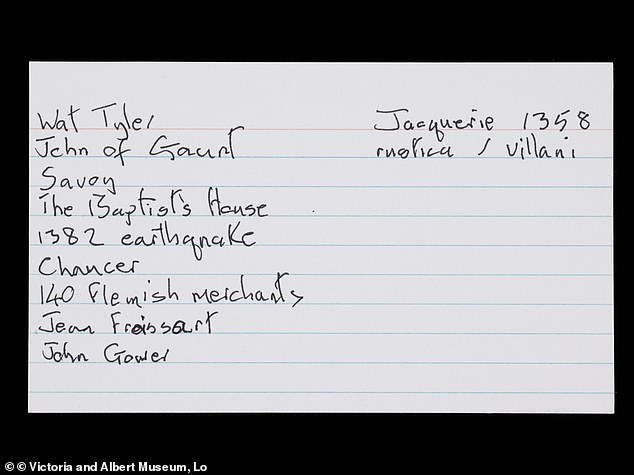 Wat Tyler
John of Gaunt
Savoy
The Baptist's House
1382 earthquake
Chaucer
140 Flemish merchants
Jean Froissart
John Gower
Jacquerie 1358
rustica / villani
© © Victoria and Albert Museum, Lo